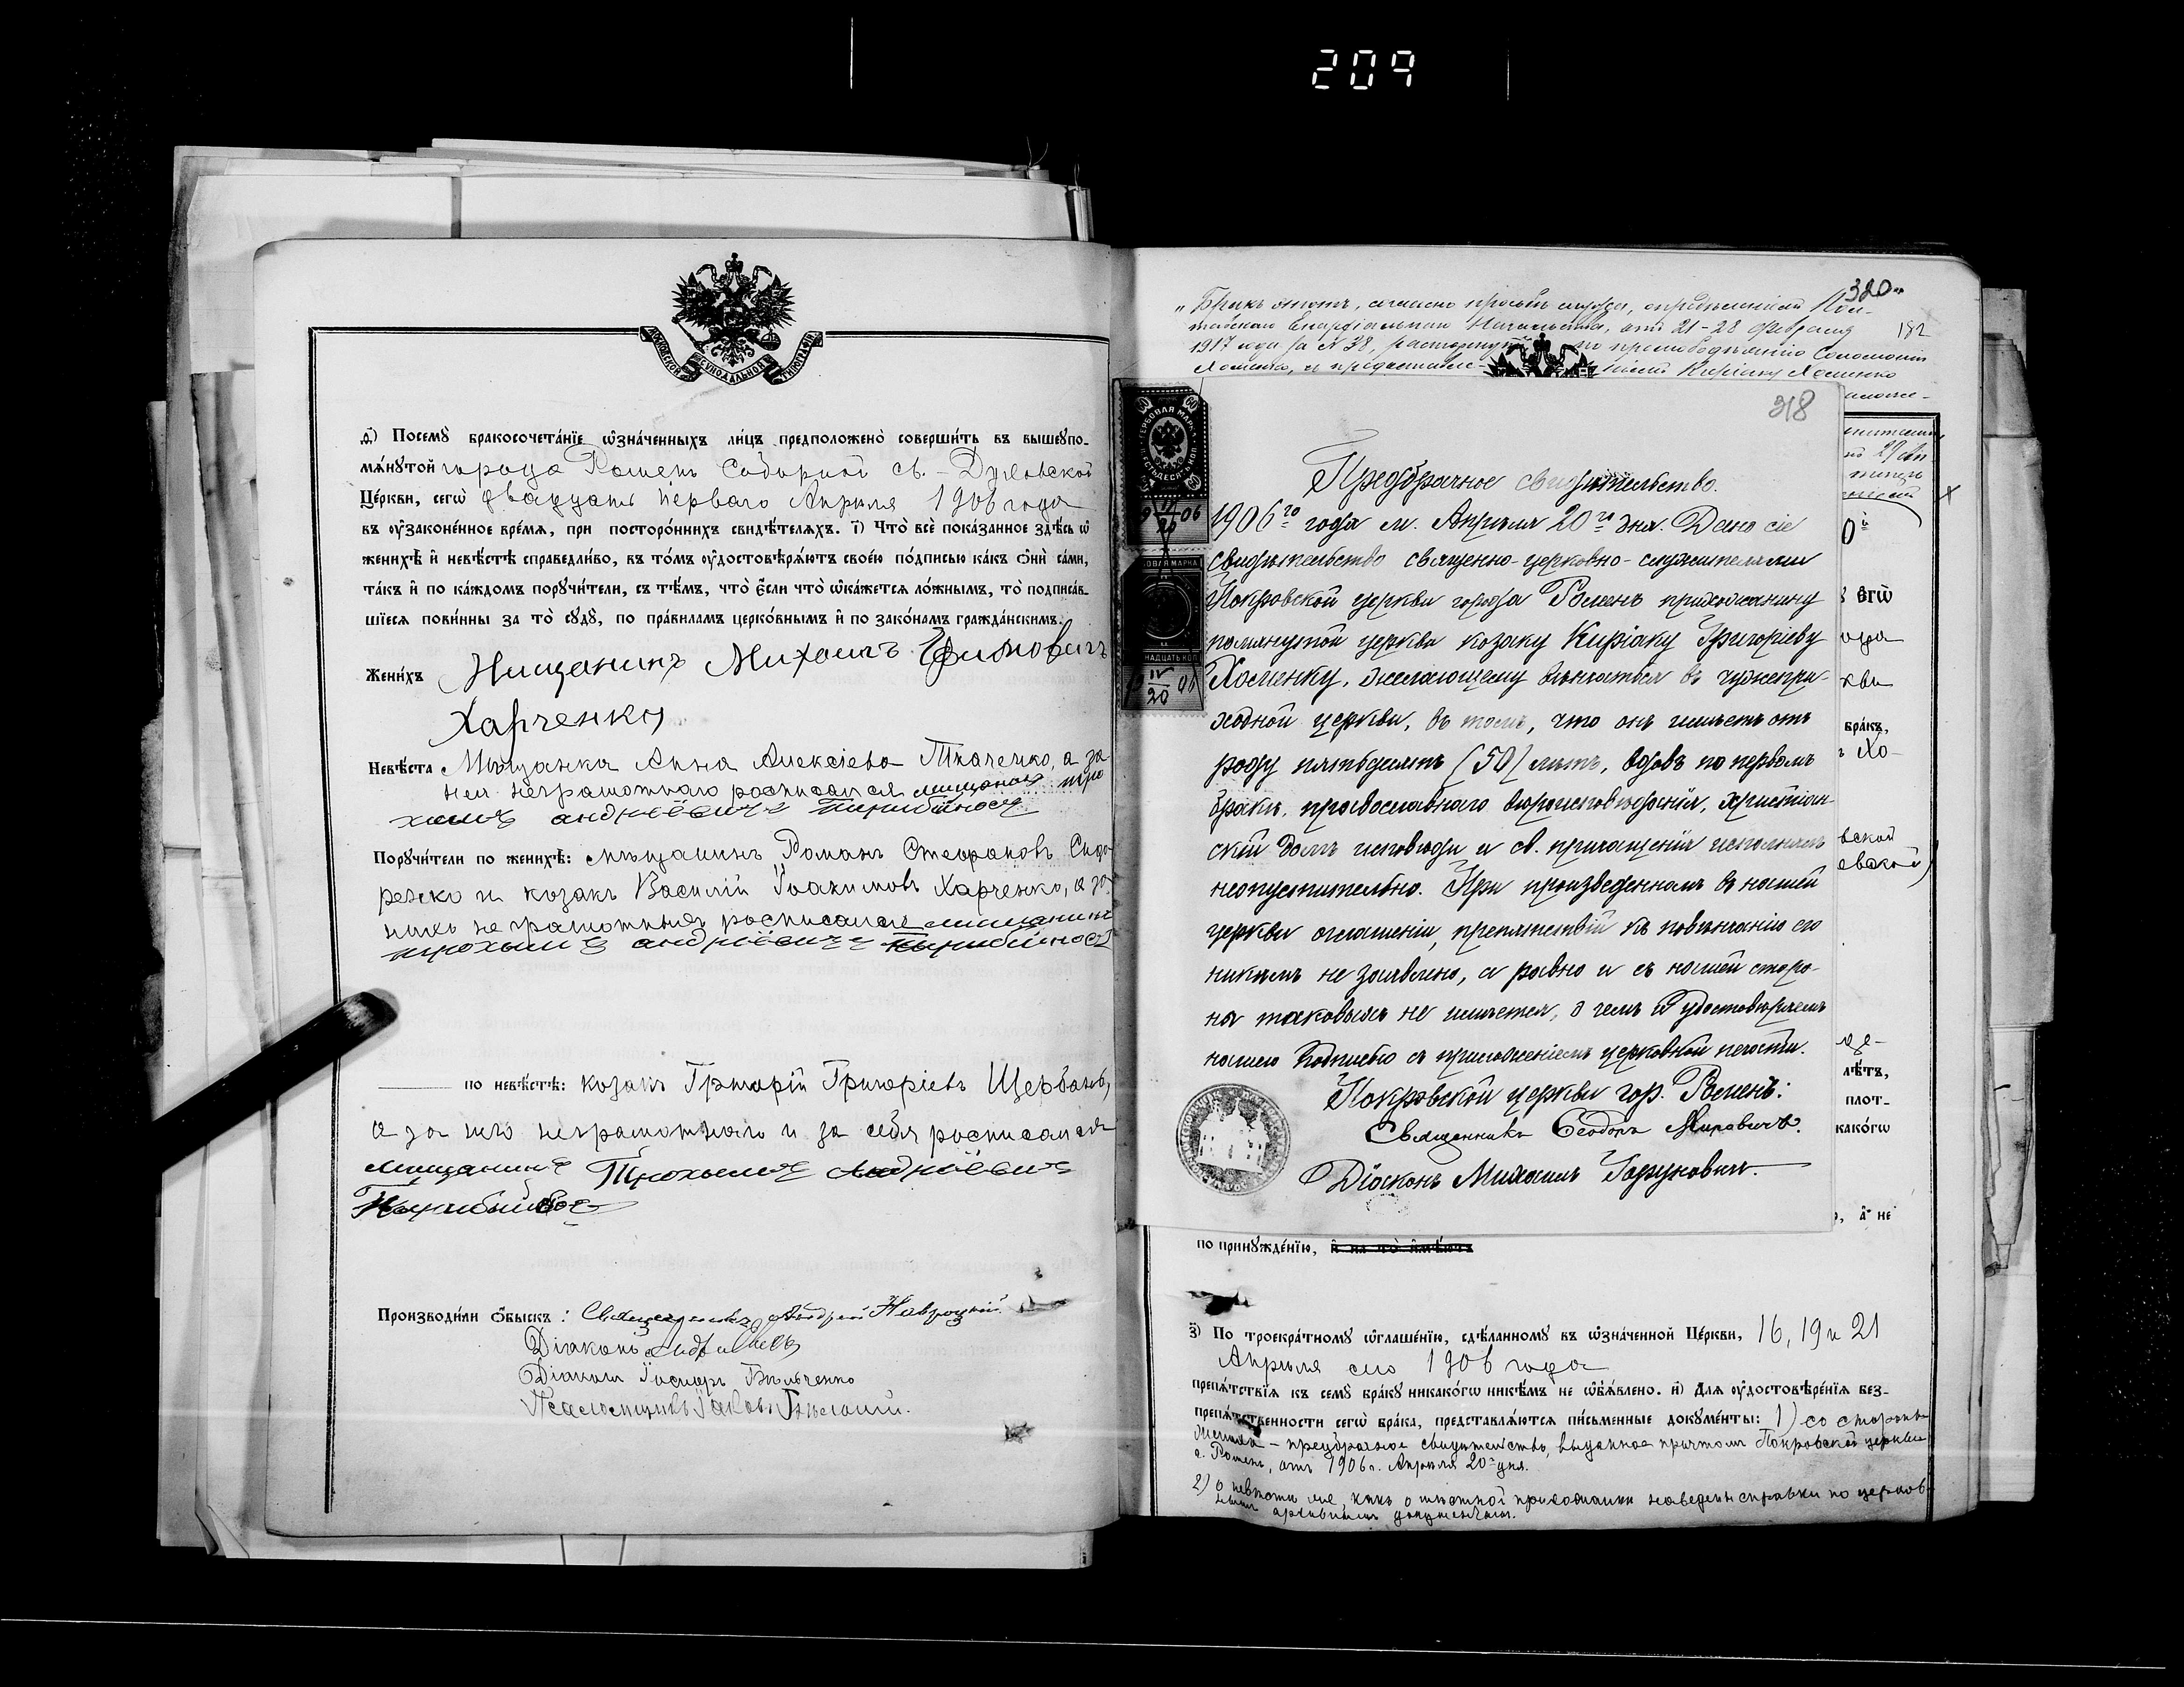 209
МОСКОВСКОЙ СѴНОДАЛЬНОЙ ТИПОГРАФІИ
д҃) Посемꙋ̀ бракосочета́нїе ѡ҆зна́ченныхъ ли́цъ предположено̀ соверши́ть въ вышеꙋпо-
мѧ́нꙋтой города Ромень Соборной св.-Духовской
Це́ркви, сегѡ̀ двадцать перваго Апрѣля 1906 года
въ ᲂу҆законе́нное вре́мѧ, при посторо́ннихъ свидѣ́телѧхъ. і҃) Что̀ всѐ пока́занное здѣ́сь ѡ҆
женихѣ̀ и҆ невѣ́стѣ справедли́во, въ то́мъ ᲂу҆достовѣрѧ́ютъ свое́ю по́дписью ка́къ ѻ҆нѝ са́ми,
та́къ и҆ по ка́ждомъ порꙋчи́тели, съ тѣ́мъ, что̀ є҆́сли что̀ ѡ҆ка́жется ло́жнымъ, то̀ подписа́в-
шїеся пови́нны за то̀ сꙋдꙋ̀, по пра́виламъ церко́внымъ и҆ по зако́намъ гражда́нскимъ.
Жени́хъ Мищанинъ Михаилъ
Харченко
Невѣ́ста Мѣщанка Анна Алексіева Ткаченко, а за
неи неграмотнаго росписался мищанинъ тро
химъ андріёвичъ
Порꙋчи́тели по женихѣ̀: мѣщанинъ Романъ Стефановъ Сидо-
ренко и козакъ Василій Іоакимовъ Харченко, а за
нихъ неграмотныхъ росписался мищанинъ
трохымъ андріёвичъ
по невѣ́стѣ: козакъ Григорій Григоріевъ Щербань,
а за него неграмотнаго и за себя росписался
мищанинъ Трохымъ Андріёвичъ
Производи́ли ѻ҆́быскъ: Священникъ Андрей Навроцкій.
Діаконъ
Діаконъ Іосифъ Бильченко
Псаломщикъ Іаковъ
320
"Бракъ этотъ, согласно просьбѣ супруга, опредѣленіемъ Пол-
тавскаго Епархіальнаго Начальства, отъ 21-28 февраля
182
1917 года за № 38, расторгнутъ по прелюбодѣянію Соломоніи
Хоменко, и предоставле- Киріаку Хоменко
318
Предбрачное свидѣтельство.
1906го года м. Апрѣля 20го дня. Дано сіе
свидѣтельство священно-церковно-служителями
Покровской церкви города Роменъ прихожанину
помянутой церкви козаку Киріаку Григоріеву
Хоменку, желающему вѣнчаться въ чужепри-
ходной церкви, въ томъ, что онъ имѣетъ отъ
роду пятьдесятъ (50) лѣтъ, вдовъ по первомъ
бракѣ, православнаго вѣроисповѣданія, христіан-
скій долгъ исповѣди и св. причащенія исполнялъ
неопустительно. При произведенномъ въ нашей
церкви оглашеніи, препятствій къ повѣнчанію его
никѣмъ не заявлено, а равно и съ нашей сторо-
ны таковыхъ не имѣется, о чемъ и удостовѣряемъ
нашею подписью съ приложеніемъ церковной печати.
Покровской церкви гор. Роменъ:
Священникъ Ѳеодоръ
Діаконъ Михаилъ
бра́къ,
лѣ́тъ,
плот-
како́гѡ
, а҆ не
по принꙋжде́нїю, и҆ на то̀ и҆мѣ́ютъ
з҃) По троекра́тномꙋ ѡ҆глаше́нїю, сдѣ́ланномꙋ въ ѡ҆зна́ченной Це́ркви, 16, 19 и 21
Апрѣля сего 1906 года
препѧ́тствїя къ семꙋ̀ бра́кꙋ никако́гѡ никѣ́мъ не ѡ҆б̾ѧ́влено. и҃) Для ᲂу҆достовѣре́нїя без-
препѧ́тственности сегѡ̀ бра́ка, представлѧ́ются пи́сьменные докꙋме́нты: 1) со стороны
жениха – предбрачное свидѣтельство, выданное причтомъ Покровской церкви
г. Роменъ, отъ 1906 г. Апрѣля 20го дня.
2) о невѣстѣ же, какъ о мѣстной прихожанки наведены справки по церков-
нымъ архивнымъ документамъ.